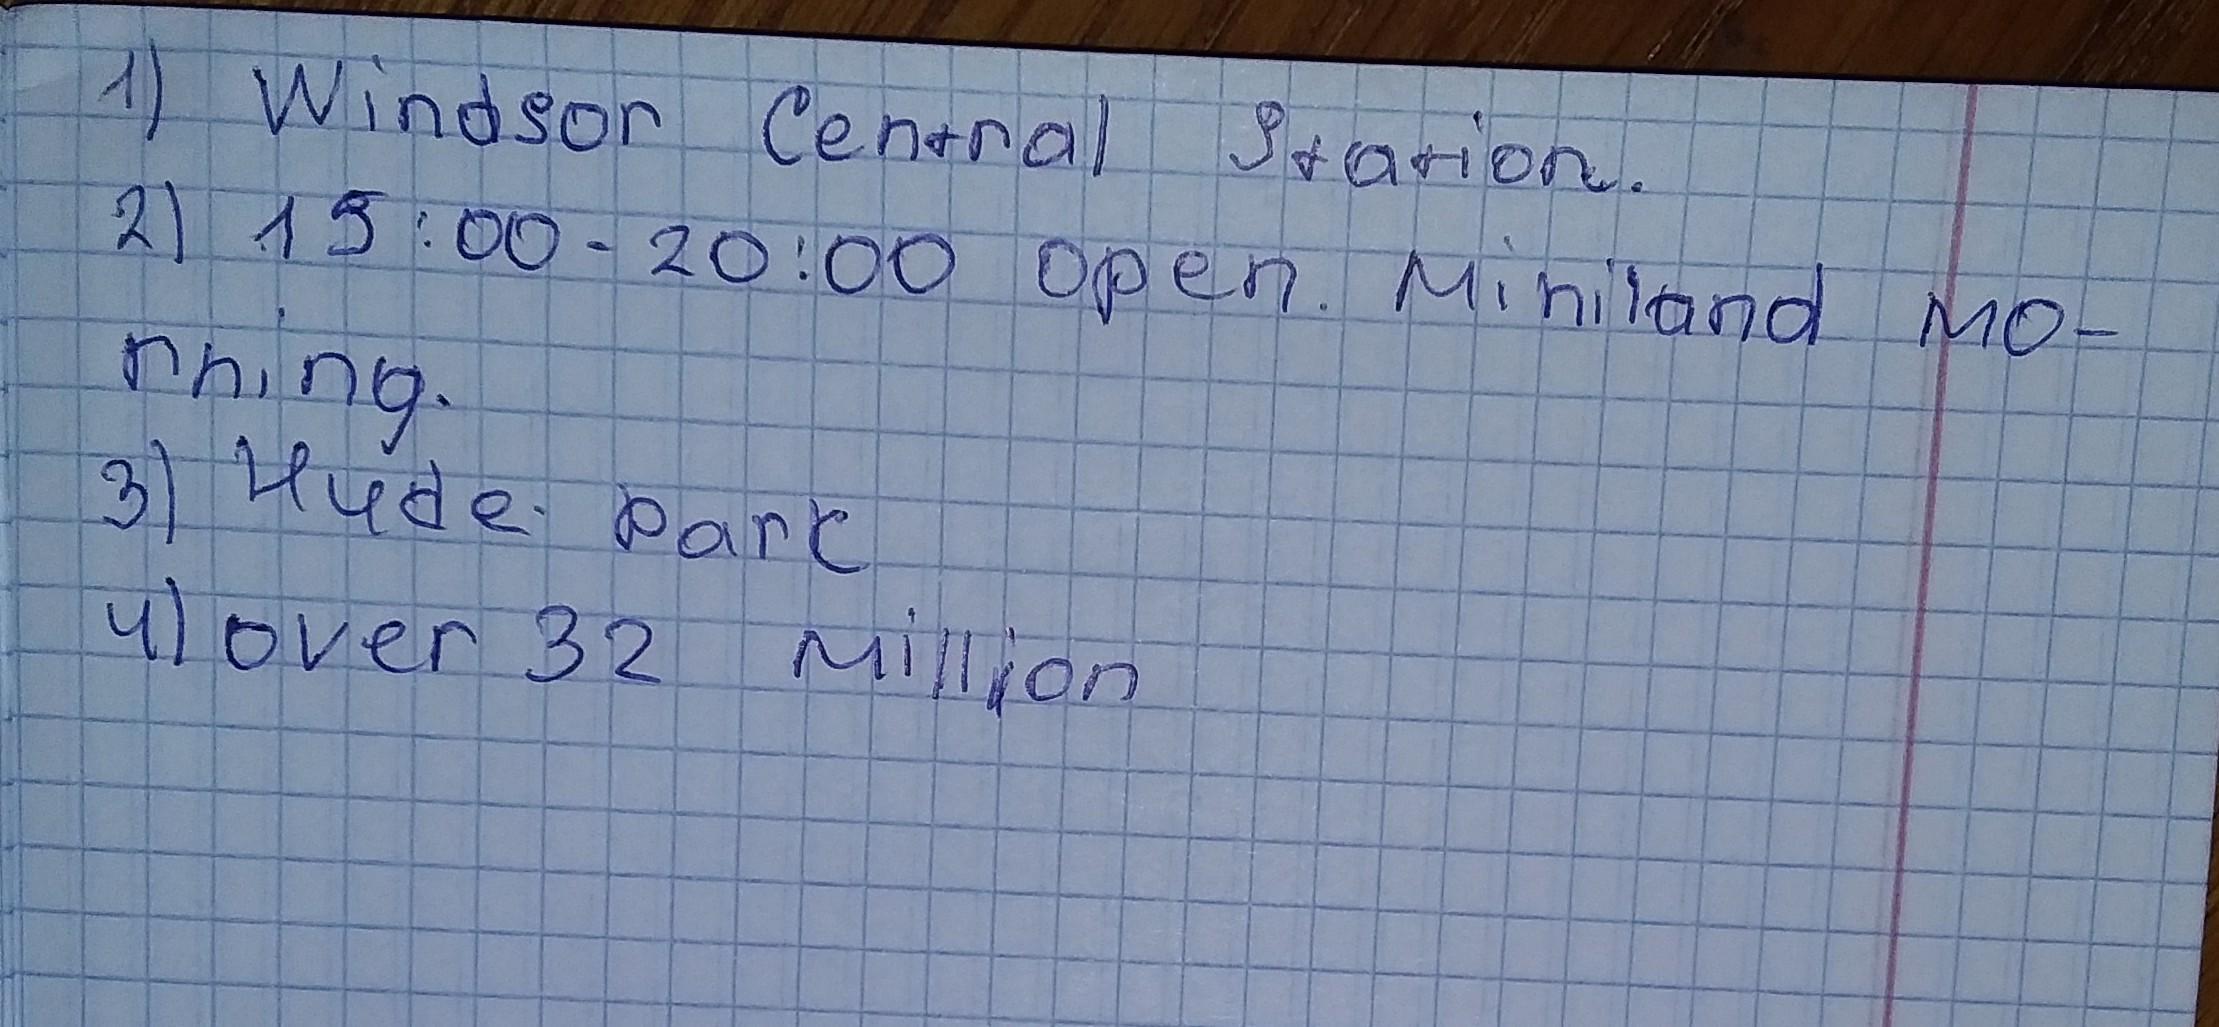 1) Windsor Central Station.
2) 15:00-20:00 open. Miniland mo-
rning.
3) Hyde park
4) over 32 million